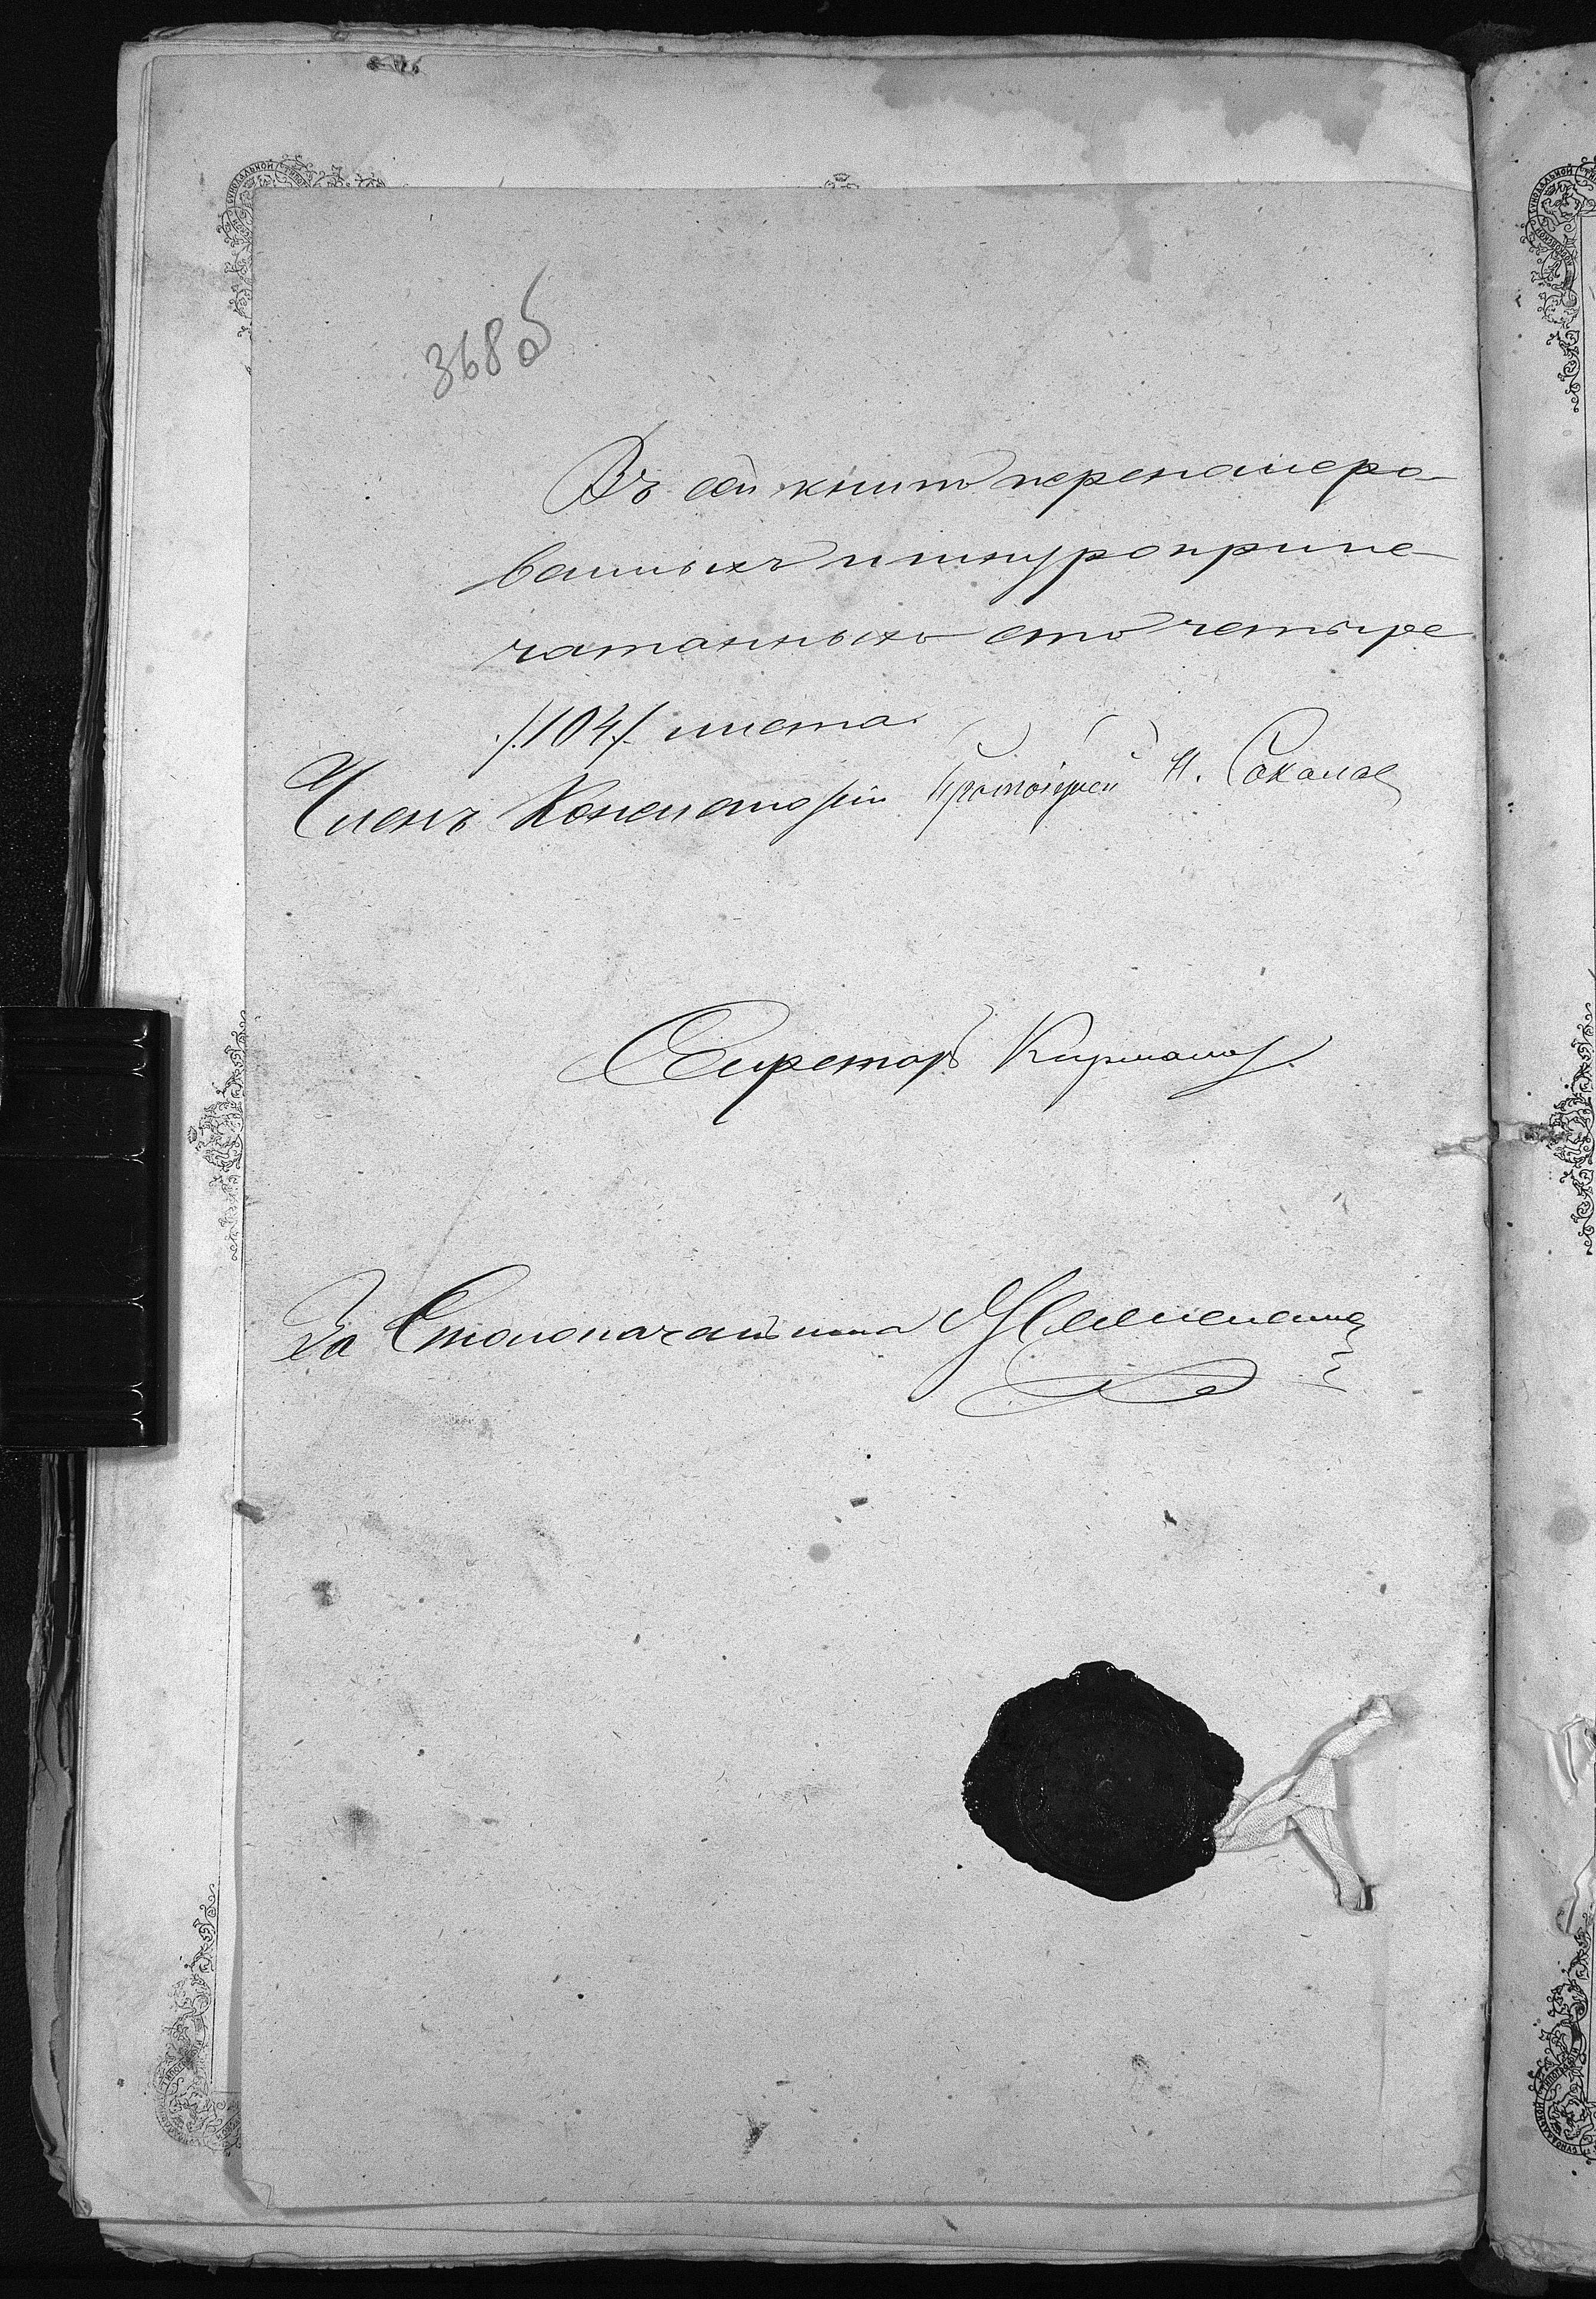 368 об
Въ сей книгѣ перенамеро-
ванныхъ и шнуроприпе-
чатанныхъ сто четыре
/104/ листа.
Членъ Консисторіи Протоіерей Н. Соколов
Секретарь
За Столоначальника